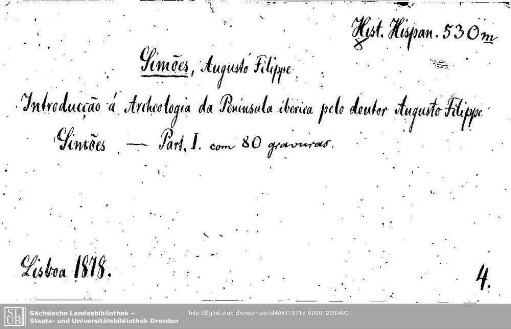 Hist. Hispan. 530m
Simões, Augusto Filippe
Introducção á Archeologia da Peninsula iberica pelo doutor Augusto Filippe
Simões — Part. I. com 80 gravuras.
Lisboa 1878.
4.
SLUB
Sächsische Landesbibliothek –
Staats- und Universitätsbibliothek Dresden